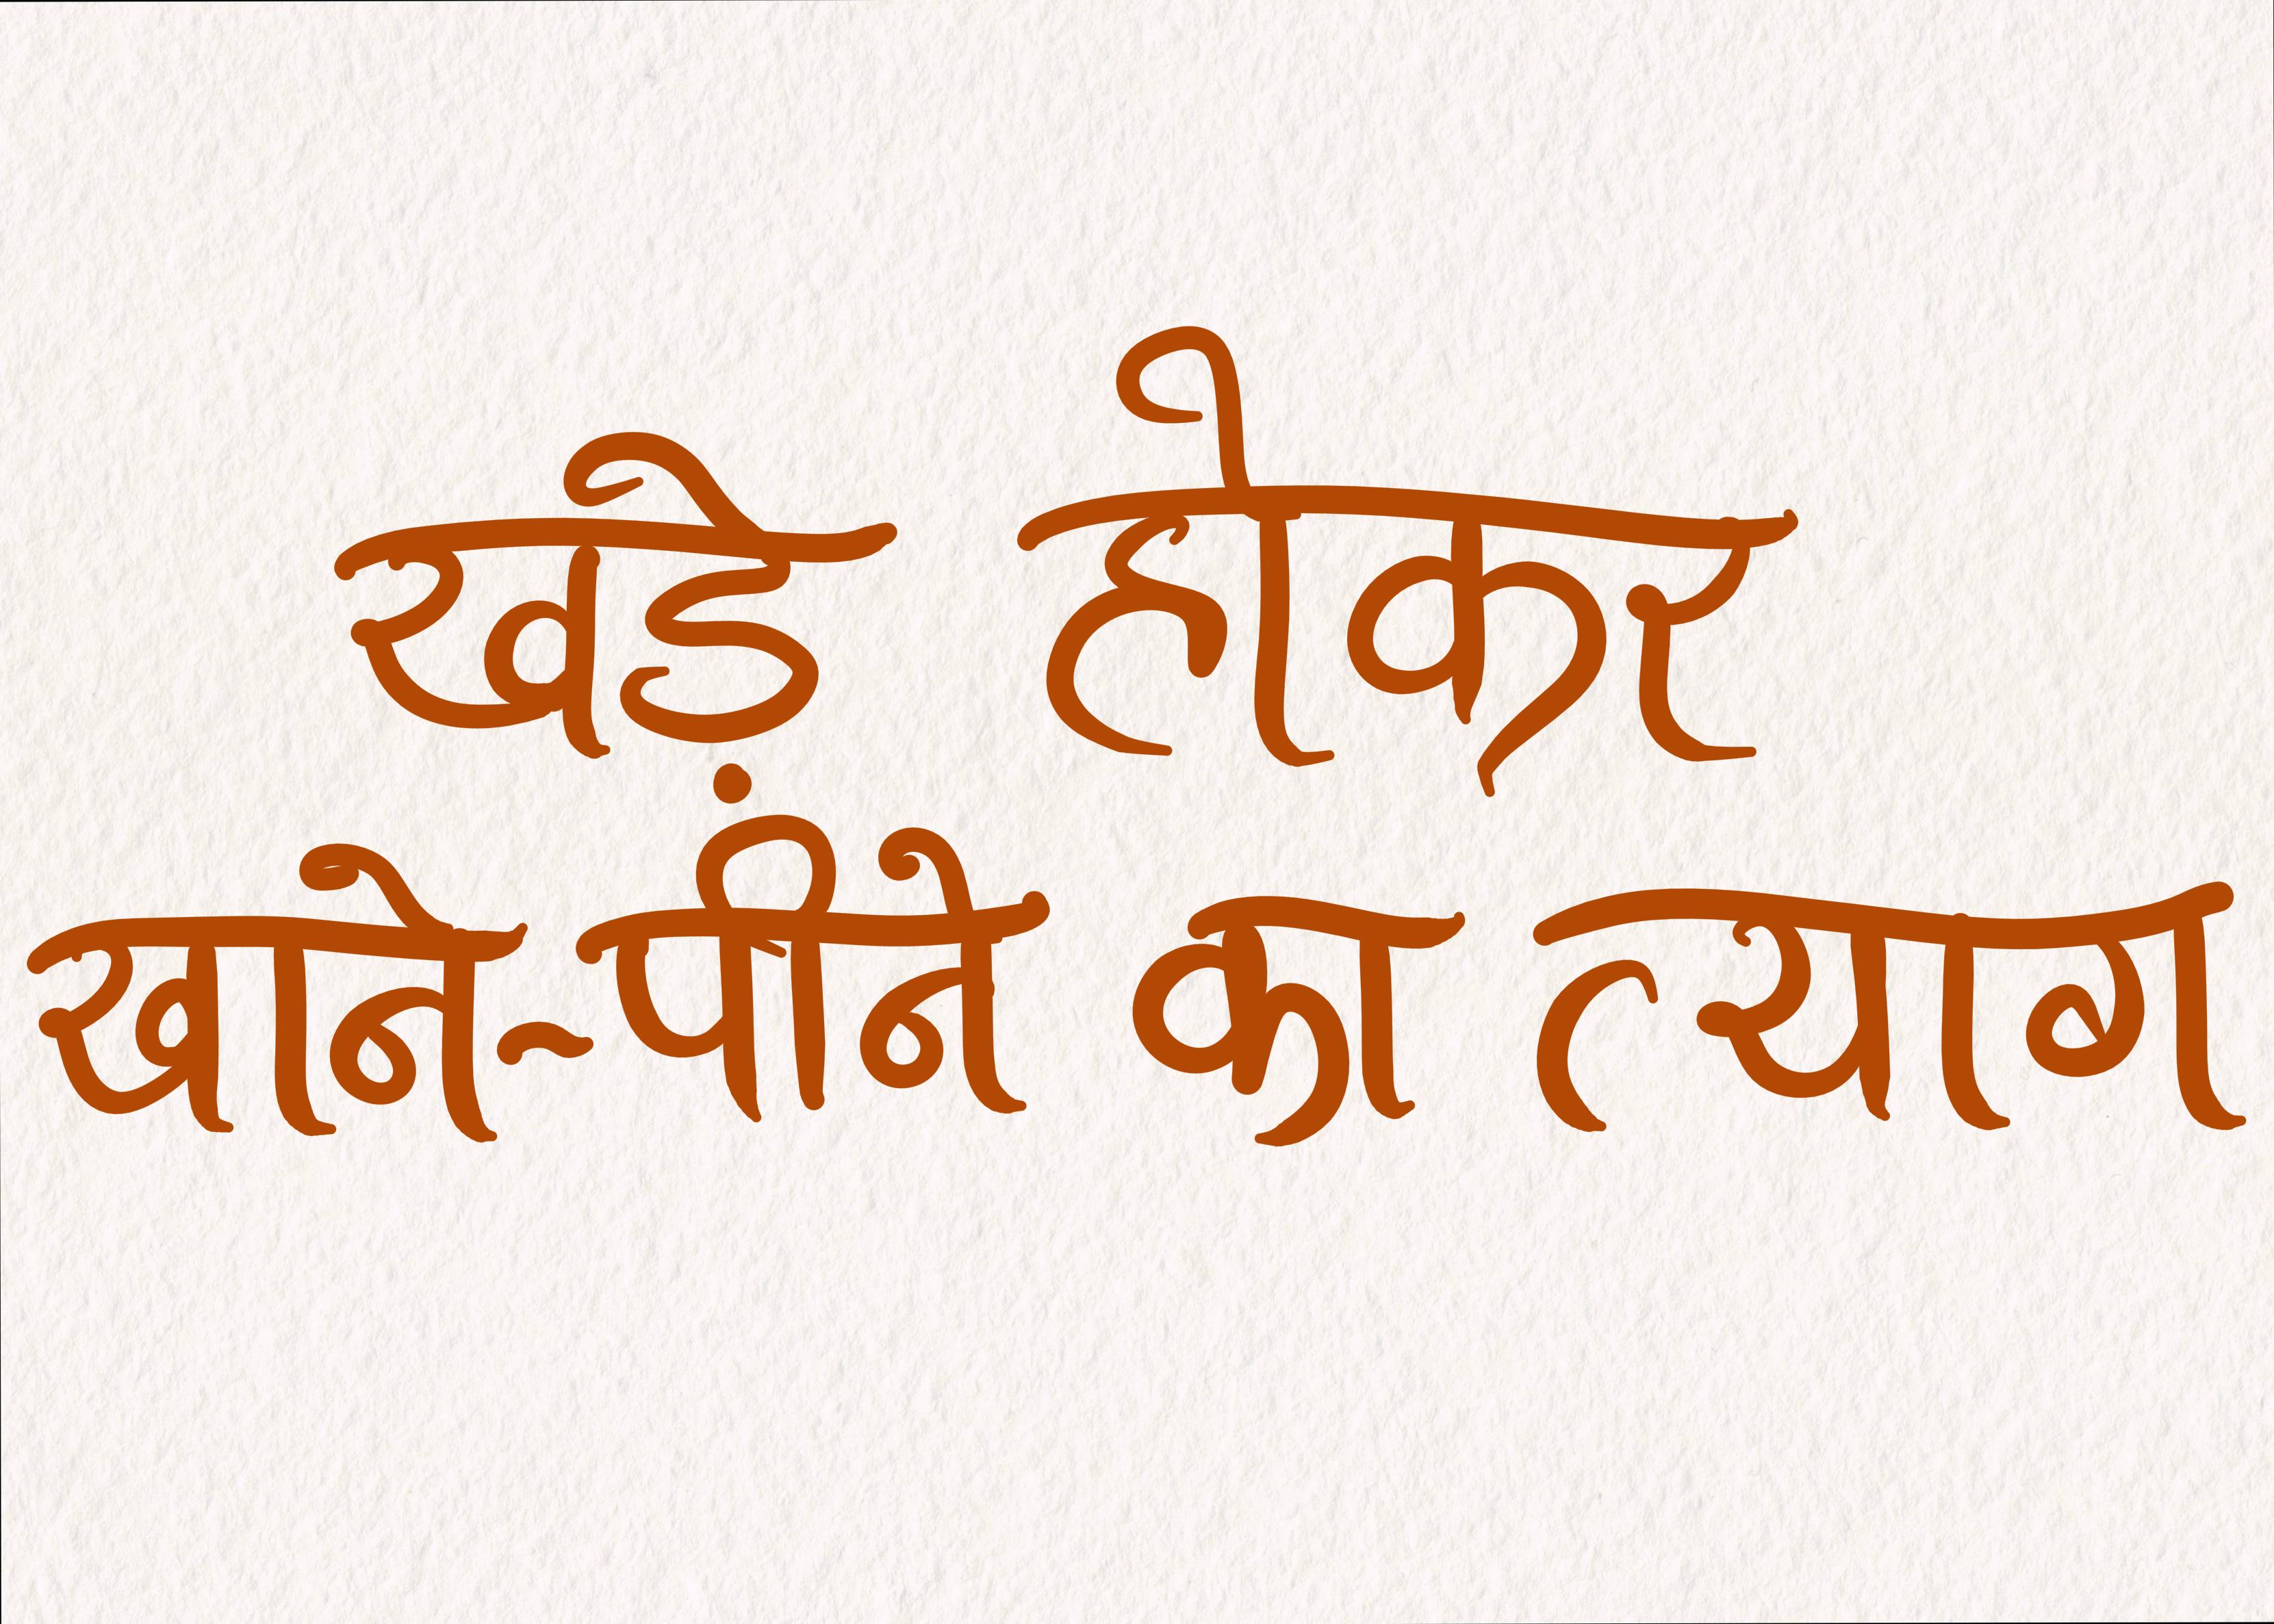 खड़े होकर
खाने-पीने का त्याग